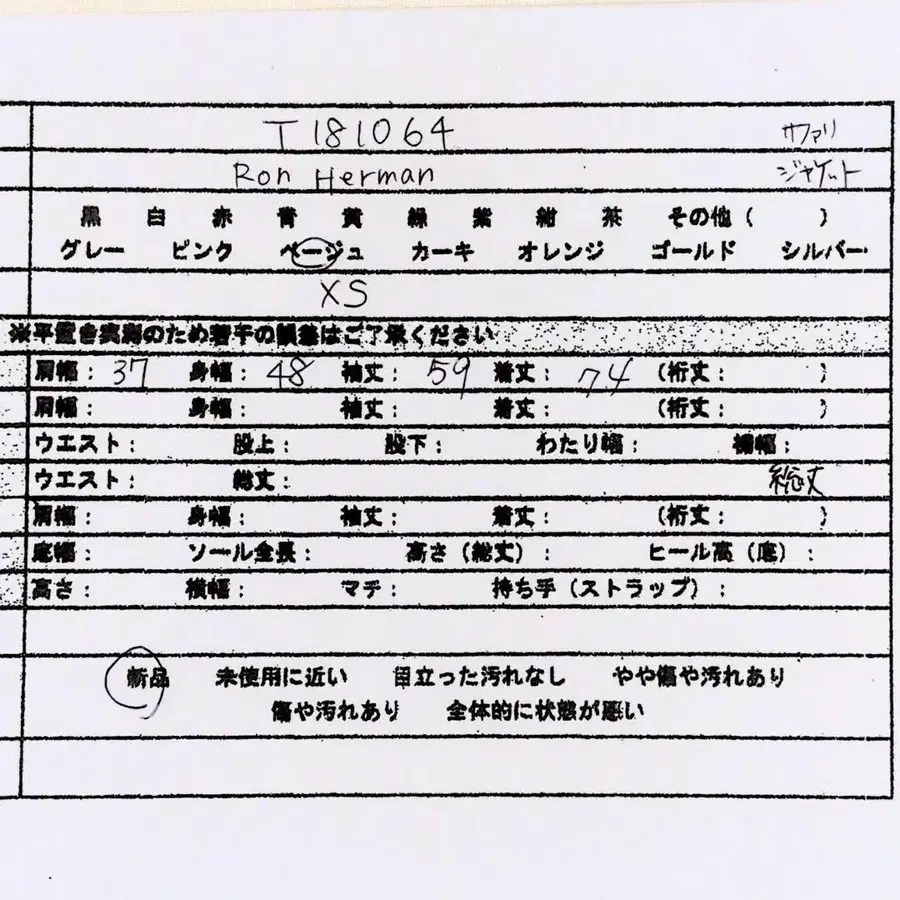 T181064 サファリ
Ron Herman ジャケット
黒 白 赤 青 黄 緑 紫 紺 茶 その他( )
グレー ピンク ベージュ カーキ オレンジ ゴールド シルバー
XS
※平置き実測のため若干の誤差はご了承ください
肩幅: 37 身幅: 48 袖丈: 59 着丈: 74 (裄丈: )
肩幅: 身幅: 袖丈: 着丈: (裄丈: )
ウエスト: 股上: 股下: わたり幅: 裾幅:
ウエスト: 総丈: 総丈
肩幅: 身幅: 袖丈: 着丈: (裄丈: )
底幅: ソール全長: 高さ(総丈): ヒール高(底):
高さ: 横幅: マチ: 持ち手(ストラップ):
新品 未使用に近い 目立った汚れなし やや傷や汚れあり
傷や汚れあり 全体的に状態が悪い